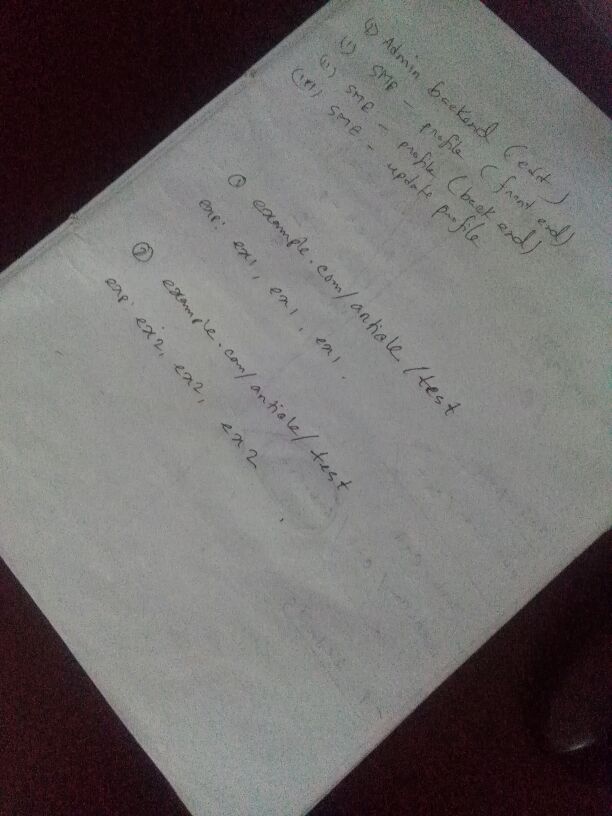 ① Admin backend (edit)
(i) SME - profile (front end)
(ii) SME - profile (back end)
(iii) SME - update profile
① example.com/article/test
exp: ex1, ex1, ex1.
② example.com/article/test
exp: ex2, ex2, ex2